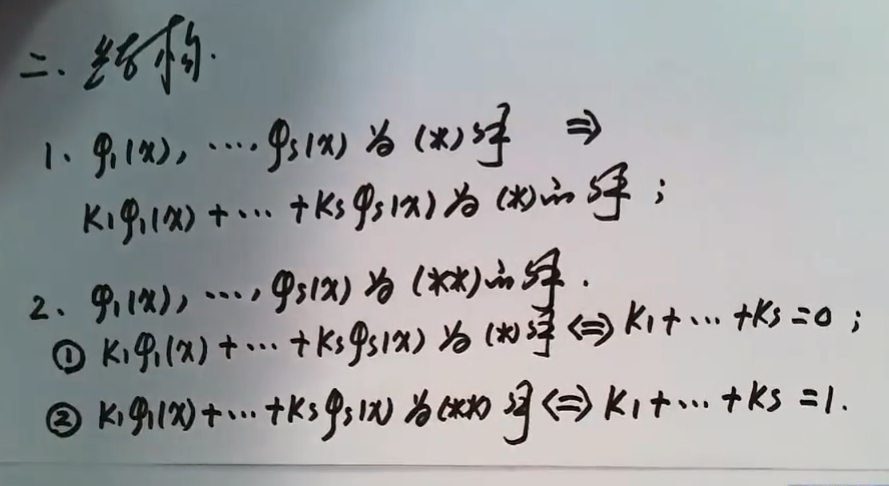 二、结构.
1、φ₁(x), ⋯, φs(x) 为 (*) 解 ⇒
K₁φ₁(x) + ⋯ + Ksφs(x) 为 (*) 的解；
2、φ₁(x), ⋯, φs(x) 为 (**) 的解.
① K₁φ₁(x) + ⋯ + Ksφs(x) 为 (*) 解 ⇔ K₁ + ⋯ + Ks = 0；
② K₁φ₁(x) + ⋯ + Ksφs(x) 为 (**) 解 ⇔ K₁ + ⋯ + Ks = 1.